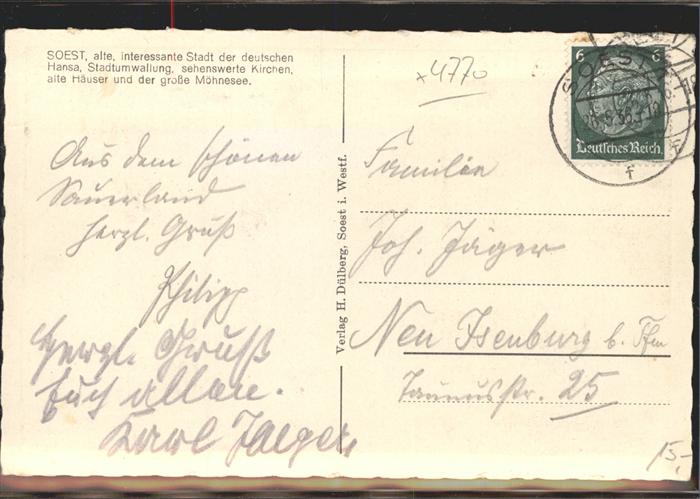 SOEST, alte, interessante Stadt der deutschen
Hansa, Stadtumwallung, sehenswerte Kirchen,
alte Häuser und der große Möhnesee.
Aus dem schönen
Sauerland
herzl. Gruß
Philipp
Herzl. Gruß
Euch allen.
Karl Jaeger
Verlag H. Dülberg, Soest i. Westf.
x4770
6 6
Deutsches Reich
SOEST
f
Familie
Joh. Jäger
Neu Isenburg b. Ffm
Taunusstr. 25
15,-